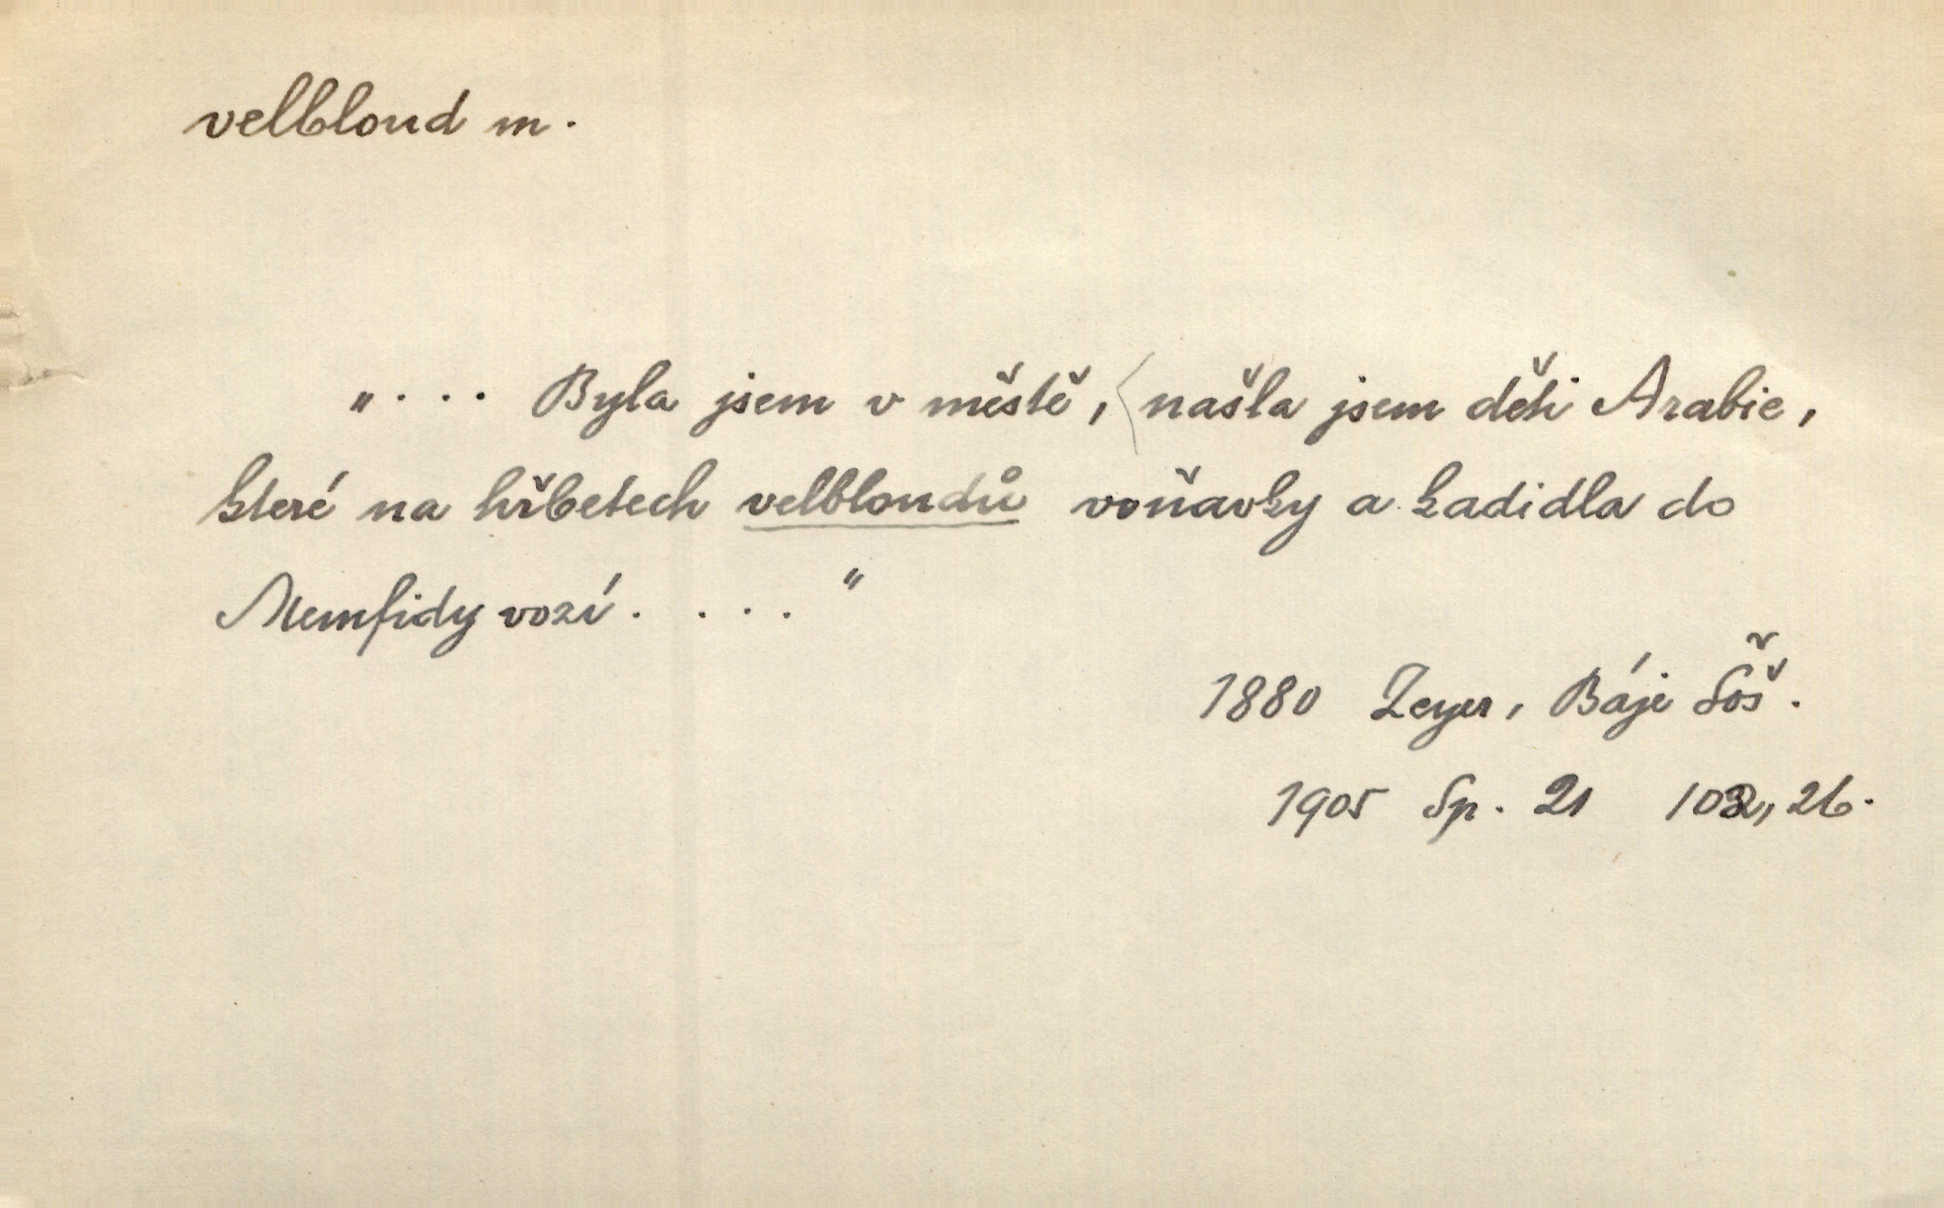 velbloud m.
„... Byla jsem v městě, našla jsem děti Arabie,
které na hřbetech velbloudů voňavky a kadidla do
Memfidy vozí. ..."
1880 Zeyer, Báje Šoš.
1905 Sp. 21 102, 26.